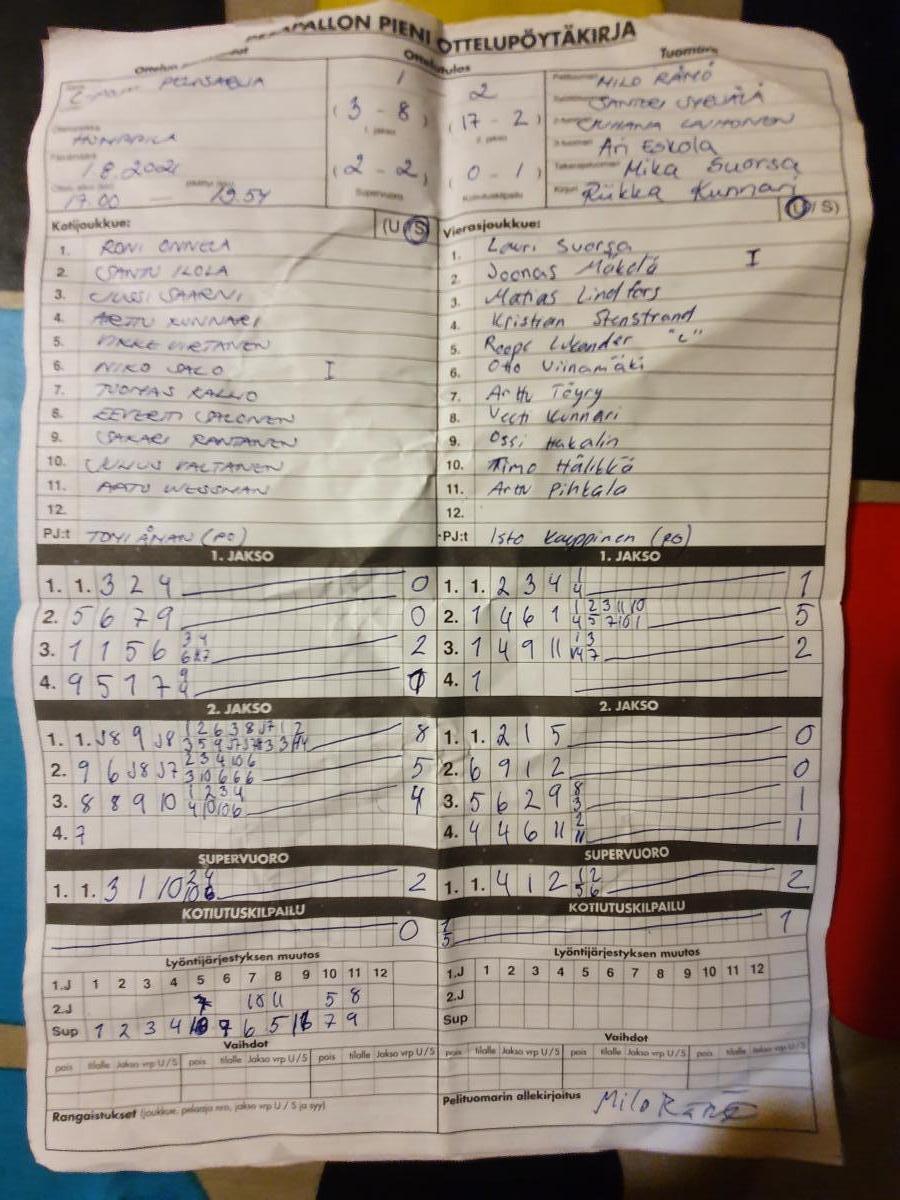 PALLON PIENI OTTELUPÖYTÄKIRJA
Tuomarit
PELISARJA
1 2
MILO RÄMÖ
(3 - 8) (17 - 2)
1. jakso 2. jakso
Ari Eskola
1.8.2021
(2 - 2) (0 - 1)
Mika Suorsa
17.00 — 19.54
Supervuoro Kotiutuskilpailu
Riikka Kunnari
Kotijoukkue: (U/S) Vierasjoukkue: (U/S)
1. RONI ONNELA 1. Lauri Suorsa
2. SANTU ILOLA 2. Joonas Mäkelä I
3. JUSSI SAARNI 3. Matias Lindfors
4. ARTTU KUNNARI 4. Kristian Stenstrand
5. VIRTANEN 5. Roope Lukander "C"
6. NIKO SALO I 6. Otto Viinamäki
7. TUOMAS KALLIO 7. Arttu Töyry
8. EEVERTTI SALONEN 8. Veeti Kunnari
9. SAKARI RANTANEN 9. Ossi Hakalin
10. JUHUS VALTANEN 10. Timo Hälikkä
11. AATU WESSMAN 11. Arttu Pihkala
12. 12.
PJ:t TOMI ÅMAN (PO) PJ:t Isto Kauppinen (PO)
1. JAKSO 1. JAKSO
1. 1. 3 2 4 0 1. 1. 2 3 4 1/4 1
2. 5 6 7 9 0 2. 1 4 6 1 1 2 3 11 10 / 4 5 7 10 1 5
3. 1 1 5 6 2 3. 1 4 9 11 2
4. 9 5 1 7 4. 1
2. JAKSO 2. JAKSO
1. 1. J8 9 J8 8 1. 1. 2 1 5 0
2. 9 6 J8 J7 2 3 4 10 6 / 3 10 6 6 6 5 2. 6 9 1 2 0
3. 8 8 9 10 1 2 3 4 / 4 10 10 6 4 3. 5 6 2 9 8/3 1
4. 7 4. 4 4 6 11 2/11 1
SUPERVUORO SUPERVUORO
1. 1. 3 1 10 2 1. 1. 4 1 2 1 2 / 5 6 2
KOTIUTUSKILPAILU KOTIUTUSKILPAILU
0 1/5 1
Lyöntijärjestyksen muutos Lyöntijärjestyksen muutos
1.J 1 2 3 4 5 6 7 8 9 10 11 12 1.J 1 2 3 4 5 6 7 8 9 10 11 12
2.J 10 11 5 8 2.J
Sup 1 2 3 4 6 5 7 9 Sup
Vaihdot Vaihdot
pois tilalle Jakso vrp U/S pois tilalle Jakso vrp U/S pois tilalle Jakso vrp U/S pois tilalle Jakso vrp U/S pois tilalle Jakso vrp U/S pois tilalle Jakso vrp U/S
Rangaistukset (joukkue, pelaaja nro, jakso vrp U / S ja syy) Pelituomarin allekirjoitus Milo Rämö